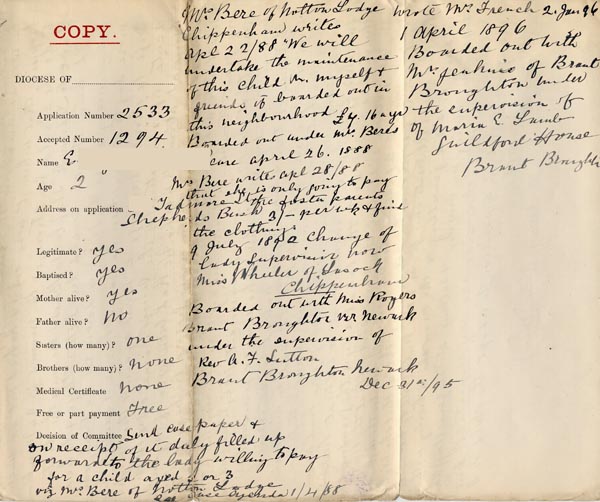 COPY.
DIOCESE OF
Application Number 2533
Accepted Number 1294.
Name E
Age 2
Address on application Tadmore St
Shepherds Bush
Legitimate? yes
Baptised? yes
Mother alive? yes
Father alive? no
Sisters (how many)? one
Brothers (how many)? none
Medical Certificate none
Free or part payment Free
Decision of Committee Send case paper &
on receipt of it duly filled up
forward to the lady willing to pay
for a child aged 2 or 3
viz Mrs Bere of Notton Lodge
see case agenda 1/4/88
Mrs Bere of Notton Lodge
Chippenham writes
apl 22/88 "We will
undertake the maintenance
of this child Mr. myself &
friends if boarded out in
this neighbourhood £4. 16 a yr
Boarded out under Mrs Beres
care april 26. 1888
Mrs Bere writes apl 28/88
that she is only going to pay
the foster parents
3/- per wk & find
the clothing.
9 July 1892 Change of
Lady Supervisor now
Miss Wheeler of Lacock
Chippenham
Boarded out with Miss Rogers
Brant Broughton nr Newark
under the supervision of
Rev A. F. Sutton
Brant Broughton Newark
Dec 31st/95
wrote Mrs French 2. Jan 96
1 April 1896
Boarded out with
Mrs Jenkins of Brant
Broughton under
the supervision of
of Maria E Lamb
Guildford House
Brant Broughton